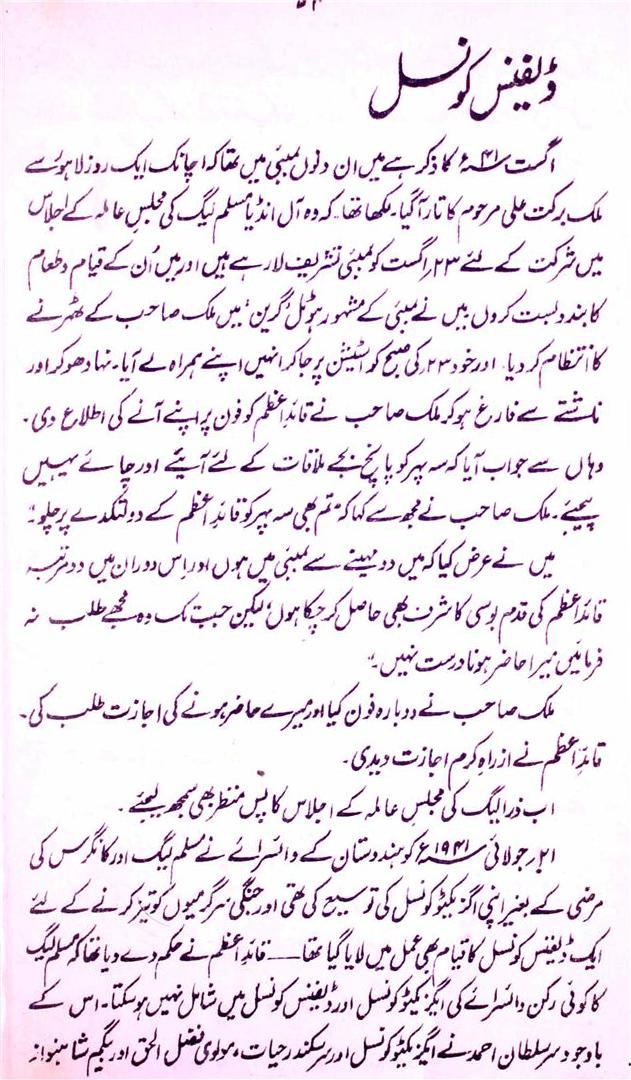 ڈیفنس کونسل
اگست ۴۱ء کا ذکر ہے میں ان دنوں بمبئی میں تھا کہ اچانک ایک روز لاہور سے
ملک برکت علی مرحوم کا تار آ گیا۔ لکھا تھا۔ کہ وہ آل انڈیا مسلم لیگ کی مجلس عاملہ کے اجلاس
میں شرکت کے لئے ۲۳؍ اگست کو بمبئی تشریف لا رہے ہیں اور میں اُن کے قیام و طعام
کا بندوبست کروں میں نے بمبئی کے مشہور ہوٹل ’گرین‘ میں ملک صاحب کے ٹھہرنے
کا انتظام کر دیا۔ اور خود ۲۳؍ کی صبح کو اسٹیشن پر جا کر انہیں اپنے ہمراہ لے آیا۔ نہا دھو کر اور
ناشتے سے فارغ ہو کر ملک صاحب نے قائداعظم کو فون پر اپنے آنے کی اطلاع دی۔
وہاں سے جواب آیا کہ سہ پہر کو پانچ بجے ملاقات کے لئے آئیے اور چائے یہیں
پیجئے۔ ملک صاحب نے مجھ سے کہا کہ ”تم بھی سہ پہر کو قائداعظم کے دولتکدے پر چلو۔“
میں نے عرض کیا کہ میں دو مہینے سے بمبئی میں ہوں اور اس دوران میں دو مرتبہ
قائداعظم کی قدم بوسی کا شرف بھی حاصل کر چکا ہوں‘ لیکن جب تک وہ مجھے طلب نہ
فرمائیں میرا حاضر ہونا درست نہیں۔“
ملک صاحب نے دوبارہ فون کیا اور میرے حاضر ہونے کی اجازت طلب کی۔
قائداعظم نے ازراہِ کرم اجازت دیدی۔
اب ذرا لیگ کی مجلس عاملہ کے اجلاس کا پس منظر بھی سمجھ لیجئے۔
۲۱؍ جولائی ۱۹۴۱ء کو ہندوستان کے وائسرائے نے مسلم لیگ اور کانگرس کی
مرضی کے بغیر اپنی اگزیکٹو کونسل کی توسیع کی تھی اور جنگی سرگرمیوں کو تیز کرنے کے لئے
ایک ڈیفنس کونسل کا قیام بھی عمل میں لایا گیا تھا —— قائداعظم نے حکم دے دیا تھا کہ مسلم لیگ
کا کوئی رکن وائسرائے کی ایگزیکٹو کونسل اور ڈیفنس کونسل میں شامل نہیں ہو سکتا۔ اس کے
باوجود سر سلطان احمد نے ایگزیکٹو کونسل اور سر سکندر حیات، مولوی فضل الحق اور بیگم شاہنواز